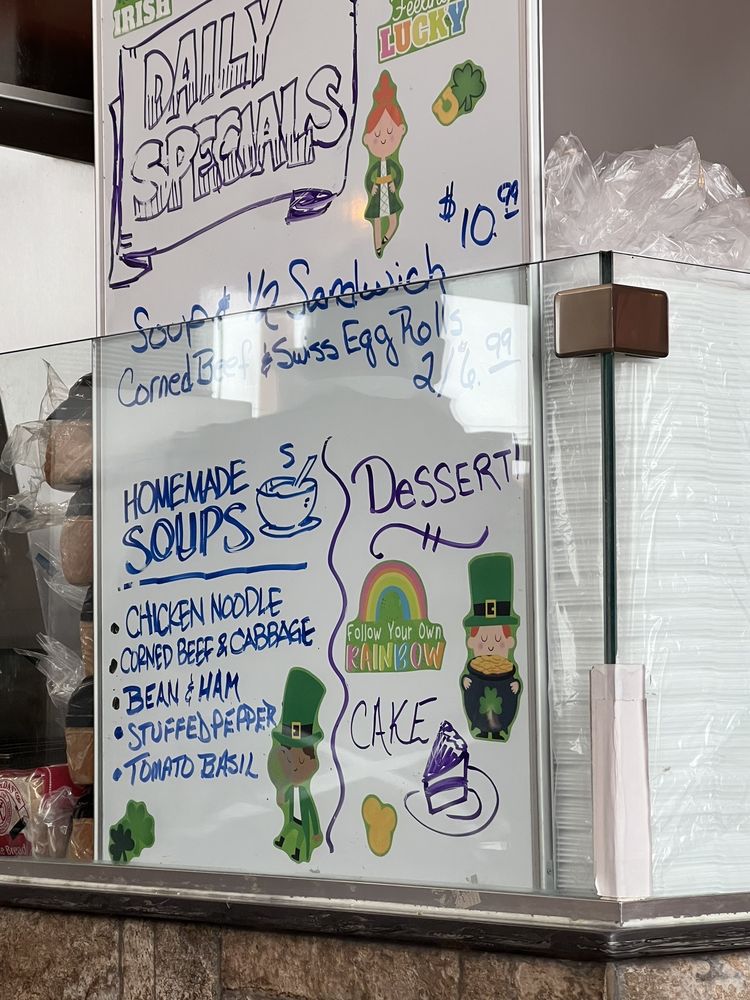 IRISH
Feeling
LUCKY
DAILY
SPECIALS
$10.99
Soup & 1/2 Sandwich
Corned Beef & Swiss Egg Rolls
2/6.99
HOMEMADE
SOUPS
• CHICKEN NOODLE
• CORNED BEEF & CABBAGE
• BEAN & HAM
• STUFFED PEPPER
• TOMATO BASIL
DESSERT
Follow Your Own
RAINBOW
CAKE